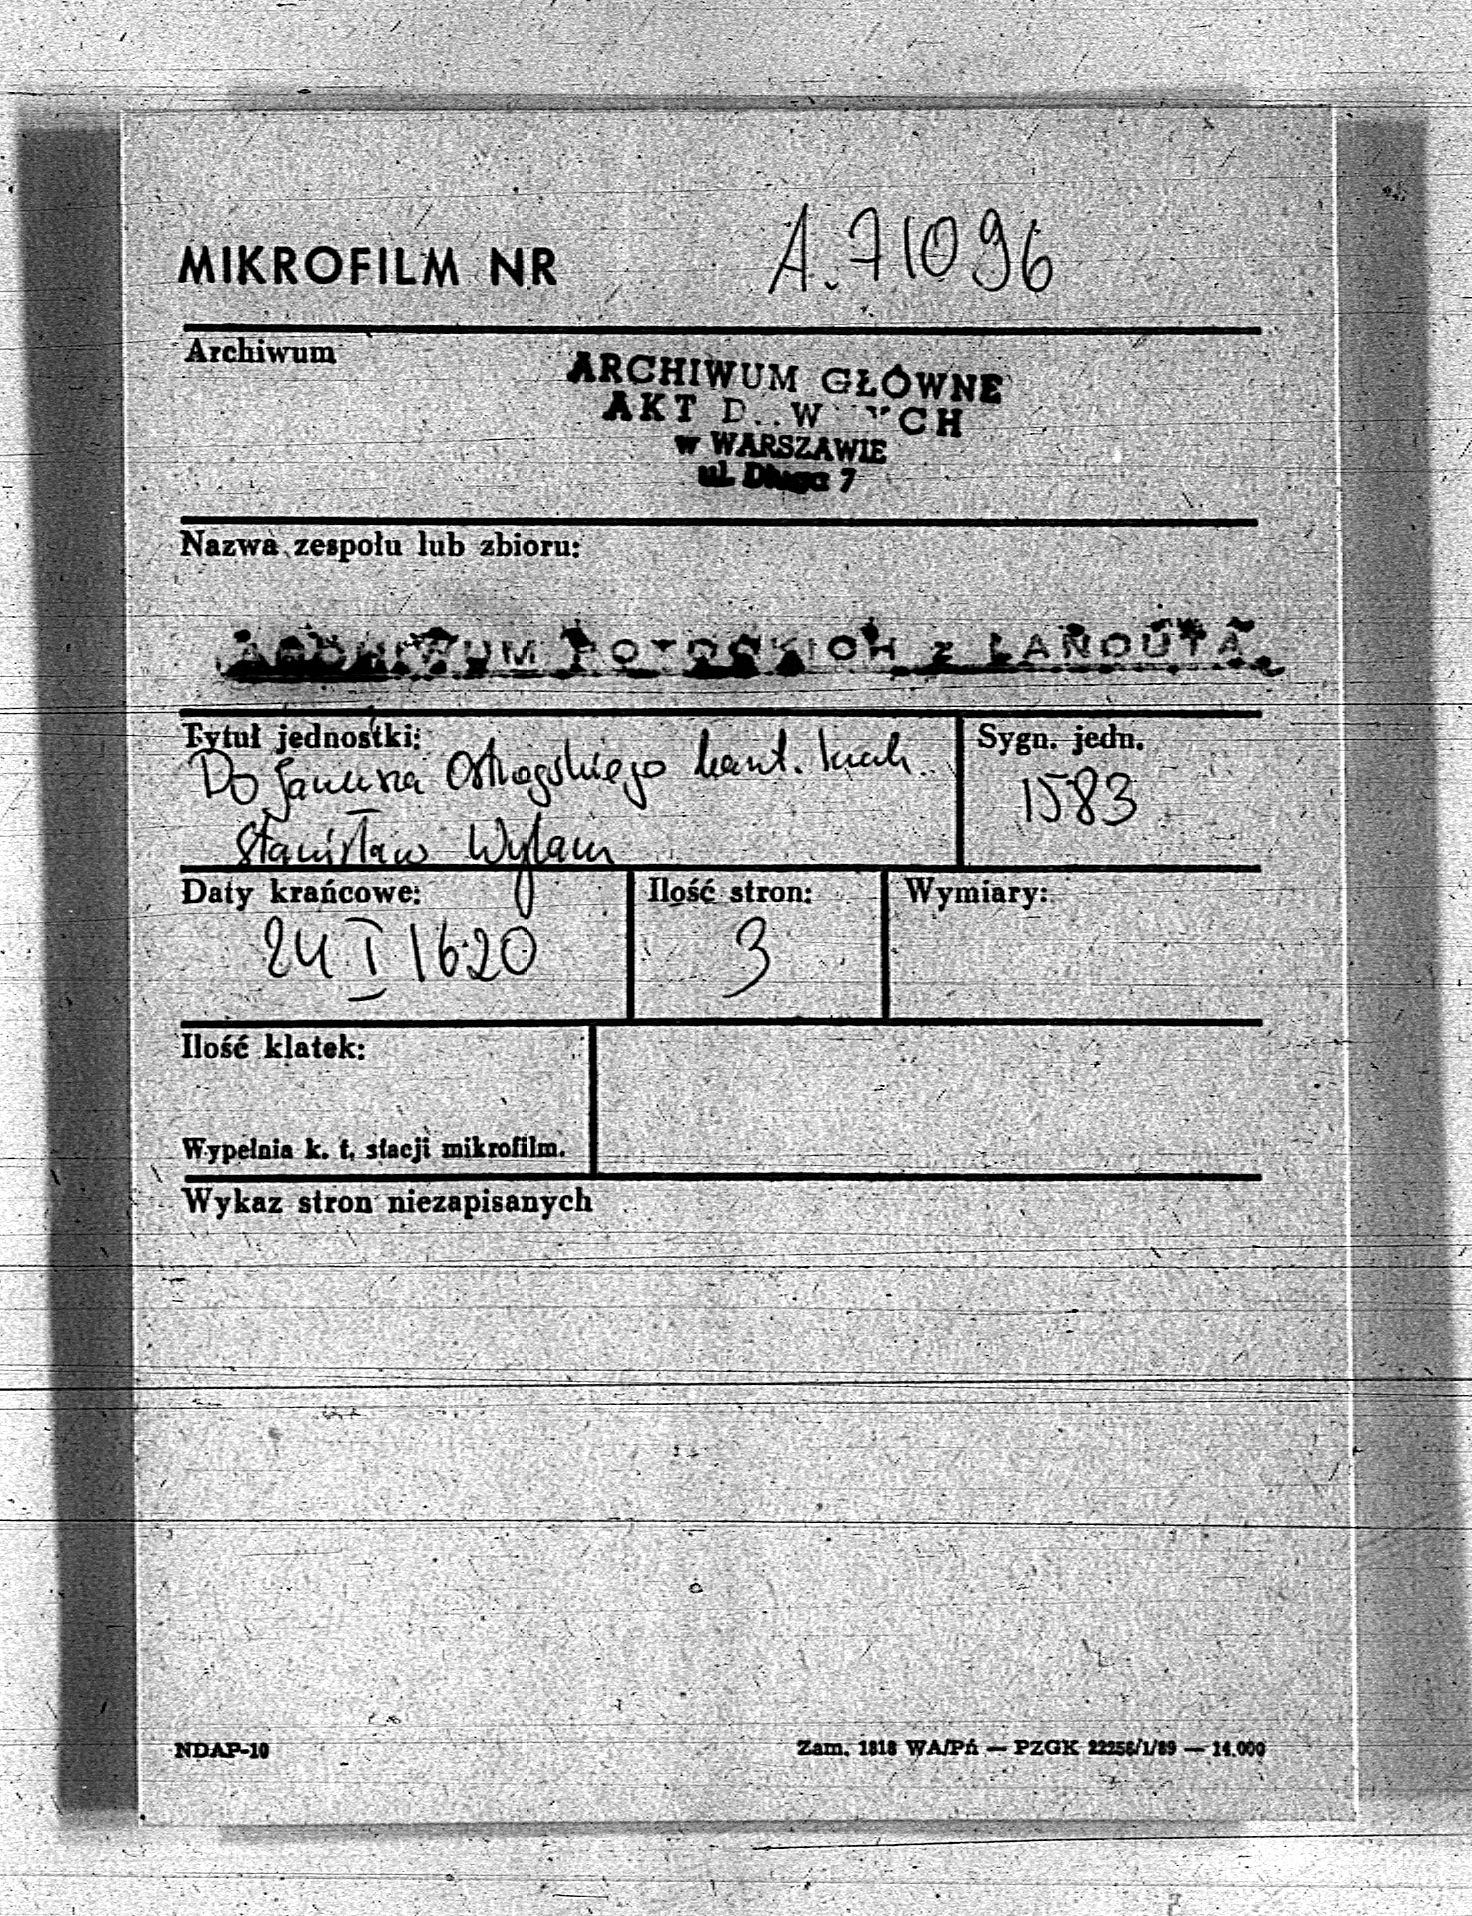 MIKROFILM NR A. 71096
Archiwum
ARCHIWUM GŁÓWNE
AKT D..W...YCH
w WARSZAWIE
ul. Długa 7
Nazwa zespołu lub zbioru:
ARCHIWUM POTOCKICH z ŁAŃCUTA
Tytuł jednostki: Sygn. jedn.
Do Janusza Ostrogskiego kaszt. krak. 1583
Stanisław
Daty krańcowe: Ilość stron: Wymiary:
24 I 1620 3
Ilość klatek:
Wypełnia k. t. stacji mikrofilm.
Wykaz stron niezapisanych
NDAP-10 Zam. 1818 WA/Pń — PZGK 22256/1/89 — 14.000